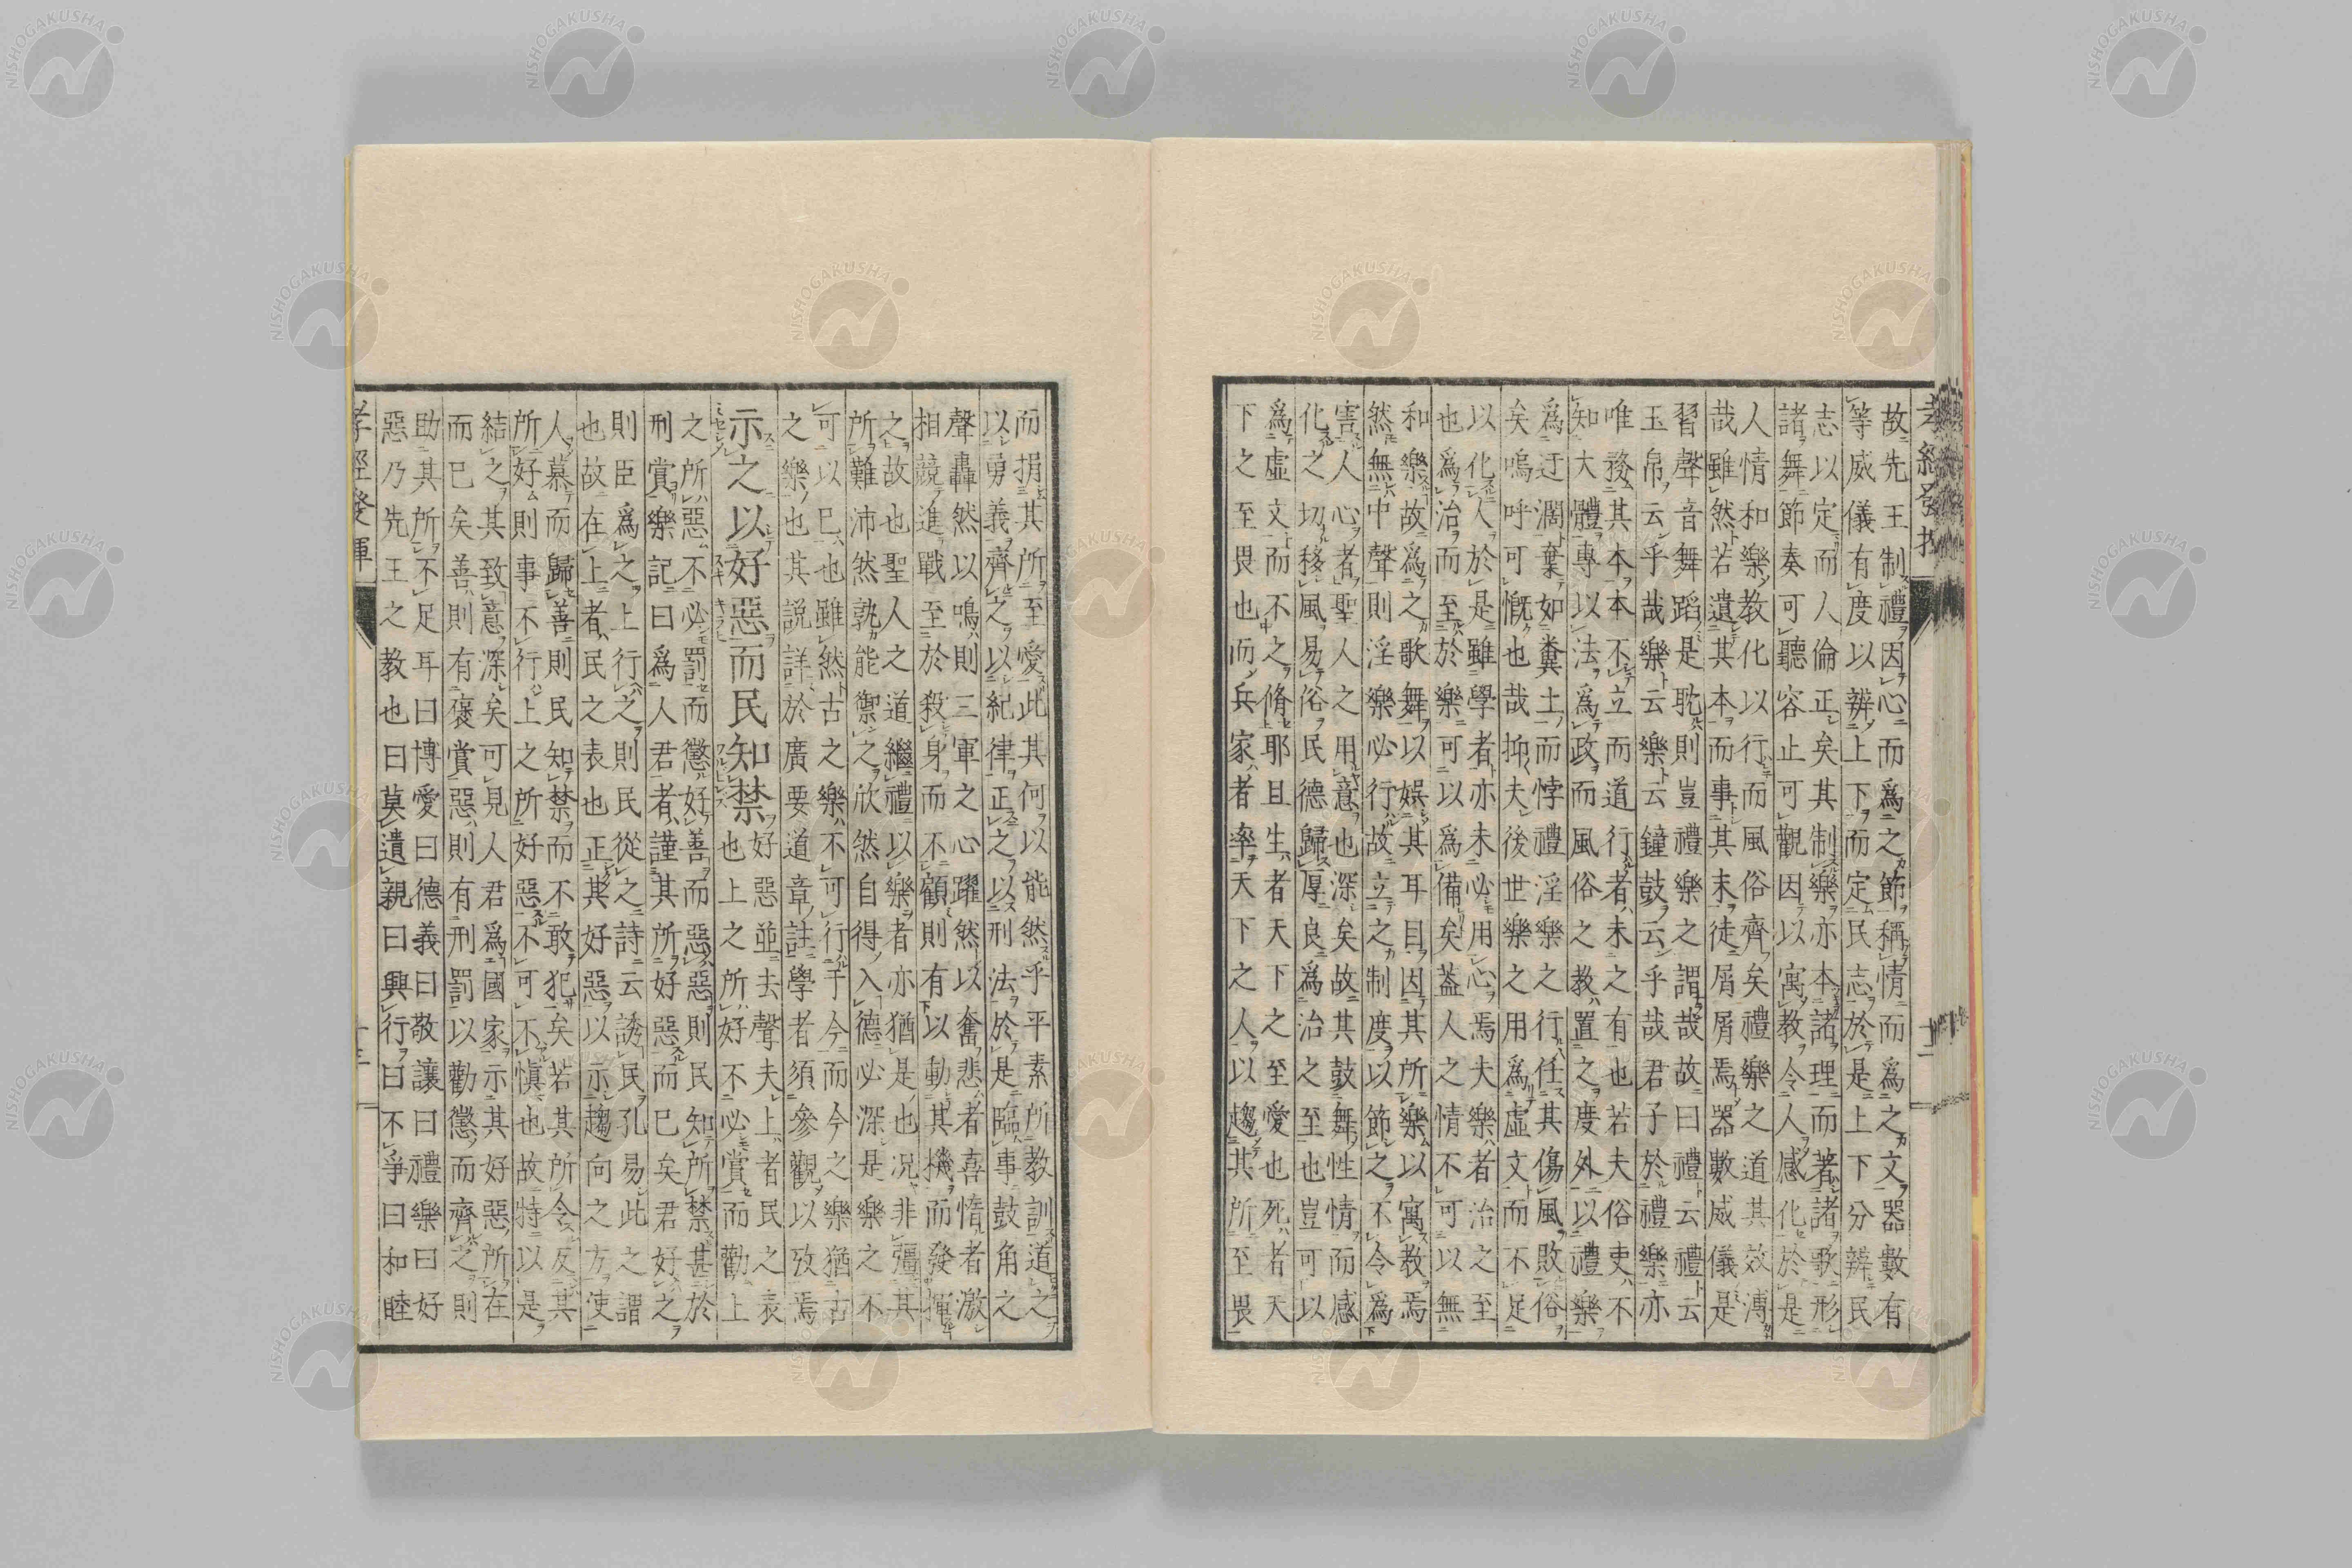 故先王制禮因心而爲之節稱情而爲之文器數有
等威儀有度以辨上下而定民志於是上下分辨民
志以定而人倫正矣其制樂亦本諸理而著諸歌形
諸舞節奏可聽容止可觀因以寓教令人感化於是
人情和樂教化以行而風俗齊矣禮樂之道其效溥
哉雖然若遺其本而事其末徒屑屑焉器數威儀是
習聲音舞蹈是耽則豈禮樂之謂哉故曰禮云禮云
玉帛云乎哉樂云樂云鐘鼓云乎哉君子於禮樂亦
唯務其本本不立而道行者未之有也若夫俗吏不
知大體專以法爲政而風俗之教置之度外以禮樂
爲迂濶棄如糞土而悖禮淫樂之行任其傷風敗俗
矣嗚呼可慨也哉抑夫後世樂之用爲虛文而不足
以化人於是雖學者亦未必用心焉夫樂者治之至
也爲治而至於樂可以爲備矣蓋人之情不可以無
和樂故爲之歌舞以娯其耳目因其所樂以寓教焉
然無中聲則淫樂必行故立之制度以節之不令爲
害人心者聖人之用意也深矣故其鼓舞性情而感
化之切移風易俗民德歸厚良爲治之至也豈可以
爲虛文而不之脩耶且生者天下之至愛也死者天
下之至畏也而兵家者率天下之人以趨其所至畏
而捐其所至愛此其何以能然乎平素所教訓道之
以勇義齊之以紀律正之以刑法於是臨事鼓角之
聲轟然以鳴則三軍之心躍然以奮悲者喜惰者激
相競進戰至於殺身而不顧則有以動其機而發揮
之故也聖人之道繼禮以樂者亦猶是也况非彊其
所難沛然孰能禦之欣然自得入德必深是樂之不
可以已也雖然古之樂不可行于今而今之樂猶古
之樂也其說詳於廣要道章註學者須參觀以攷焉
示之以好惡而民知禁
好惡並去聲夫上者民之表
也上之所好不必賞而勸上
之所惡不必罰而懲好善而惡惡則民知所禁甚於
刑賞樂記曰爲人君者謹其所好惡而已矣君好之
則臣爲之上行之則民從之詩云誘民孔易此之謂
也故在上者民之表也正其好惡以示趨向之方使
人慕而歸善則民知禁而不敢犯矣若其所令反其
所好則事不行上之所好惡不可不愼也故特以是
結之其致意深矣可見人君爲國家示其好惡所在
而已矣善則有襃賞惡則有刑罰以勸懲而齊之則
助其所不足耳曰博愛曰德義曰敬讓曰禮樂曰好
惡乃先王之教也曰莫遺親曰興行曰不爭曰和睦